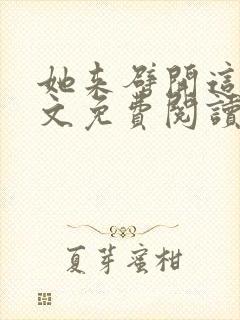 她來癖開這
文免費閱讀
夏芽蜜柑